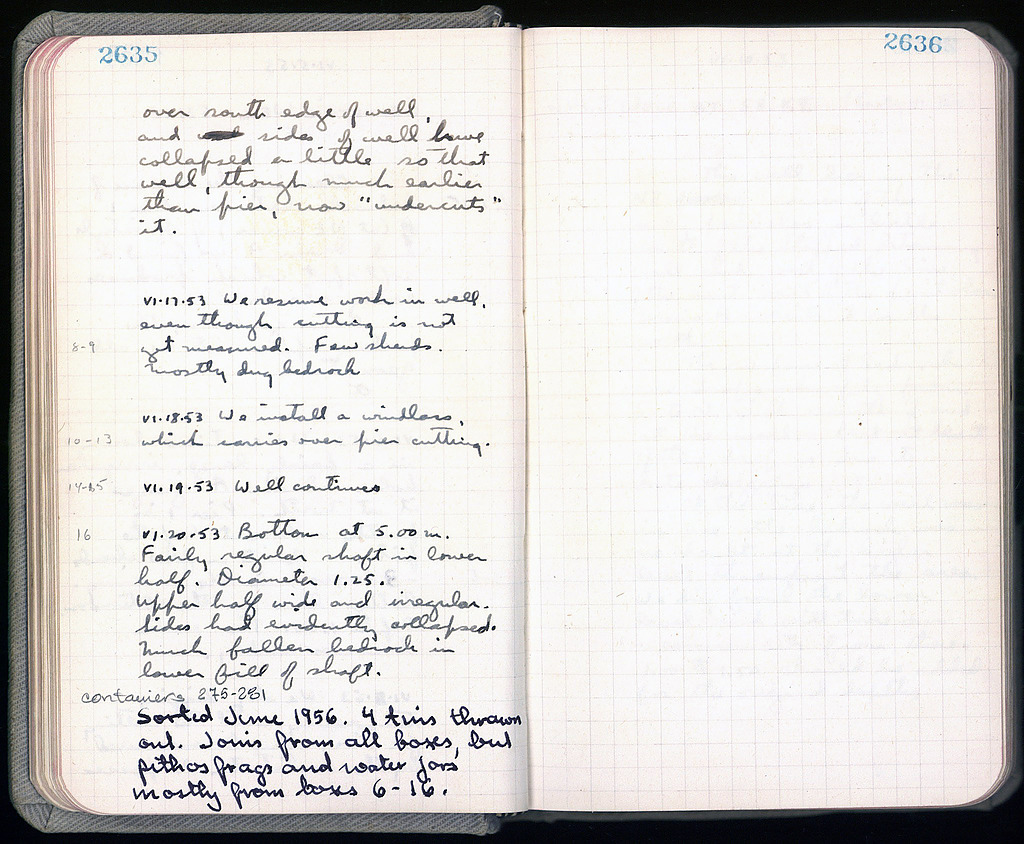 2635
over south edge of well,
and sides of well have
collapsed a little so that
well, though much earlier
than pier, now "undercuts"
it.
VI.17.53 We resume work in well,
even though cutting is not
8-9 yet measured. Few sherds.
Mostly dug bedrock
VI.18.53 We install a windlass,
10-13 which carries over pier cutting.
14-15 VI.19.53 Well continues
16 VI.20.53 Bottom at 5.00 m.
Fairly regular shaft in lower
half. Diameter 1.25.
Upper half wide and irregular.
Sides had evidently collapsed.
Much fallen bedrock in
lower fill of shaft.
containers 275-281
Sorted June 1956. 4 tins thrown
out. Joins from all boxes, but
pithos frags and water jars
mostly from boxes 6-16.
2636